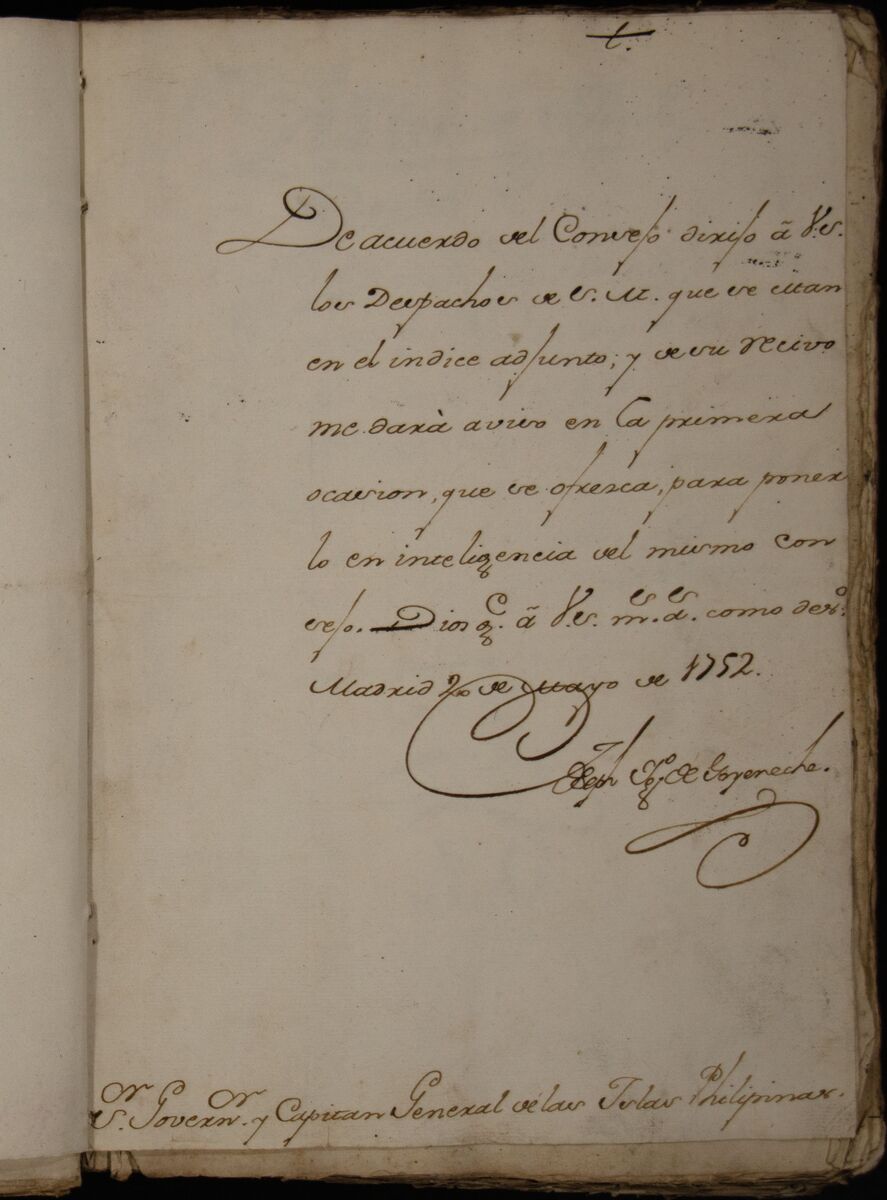 t.
De acuerdo del Consejo dirijo â V.S.
los Despachos de S. M. que se citan
en el indice adjunto; y de su recivo
me darà aviso en la primera
ocasion, que se ofresca, para poner
lo en inteligencia del mismo Con
sejo. Dios g.e â V.S. m.s a.s como des.o
Madrid 20 de Mayo de 1752.
Joseph Ign.o de Goyeneche.
S.or Govern.or y Capitan General de las Islas Philipinas.